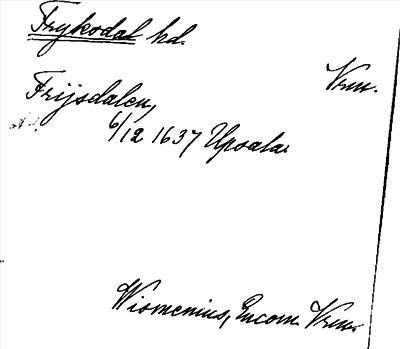 Frykodal hd.
Vrm.
Frijsdalen,
6/12 1637 Upsala.
Wismenius, Encom. Vrm.